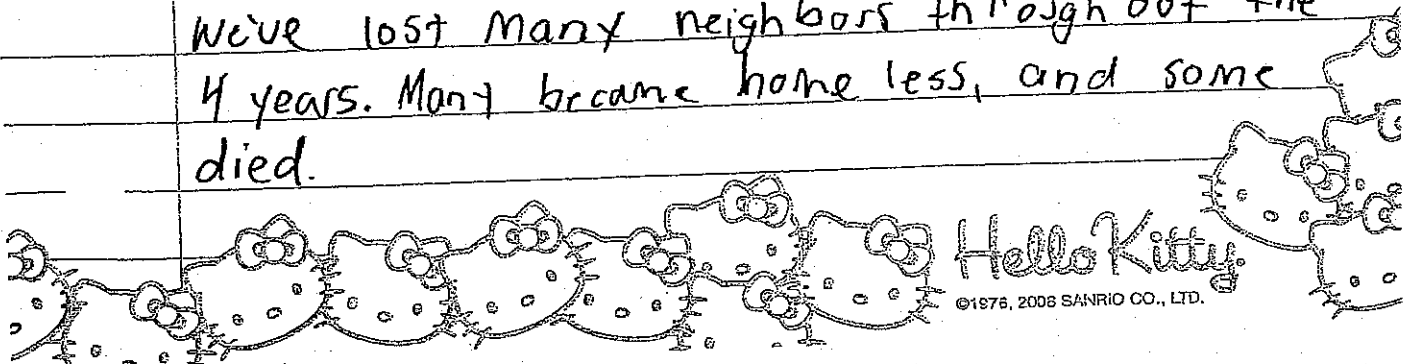 We've lost Many neighbors throughout the
4 years. Many became homeless, and some
died.
Hello Kitty.
©1976, 2008 SANRIO CO., LTD.